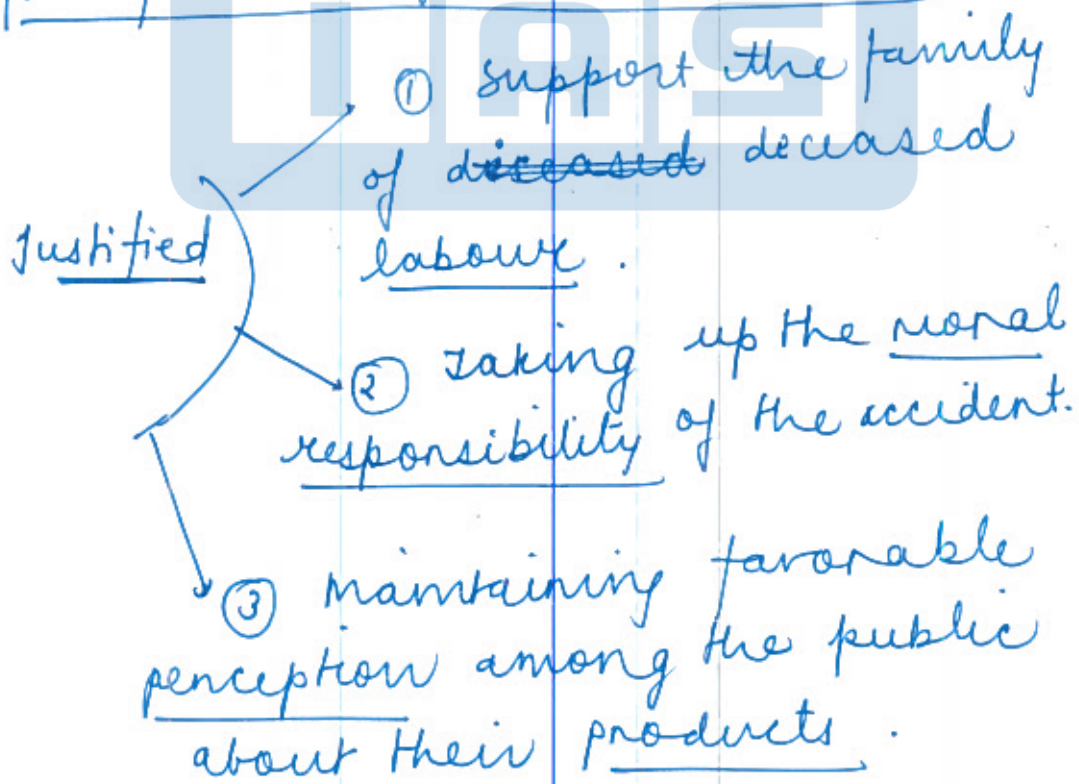 IAS
① Support the family
of diceased deceased
Justified
labour.
② Taking up the moral
responsibility of the accident.
③ Maintaining favorable
perception among the public
about their products.